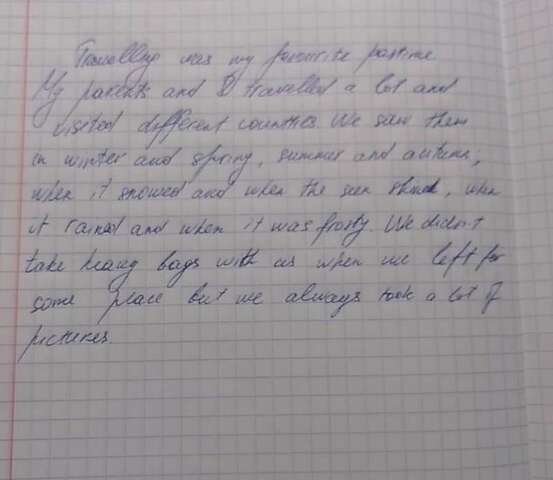 Travelling was my favourite pastime
My parents and I travelled a lot and
visited different countries. We saw them
in winter and spring, summer and autumn,
when it snowed and when the sun shined, when
it rained and when it was frosty. We didn't
take heavy bags with us when we left for
some place but we always took a lot of
pictures.